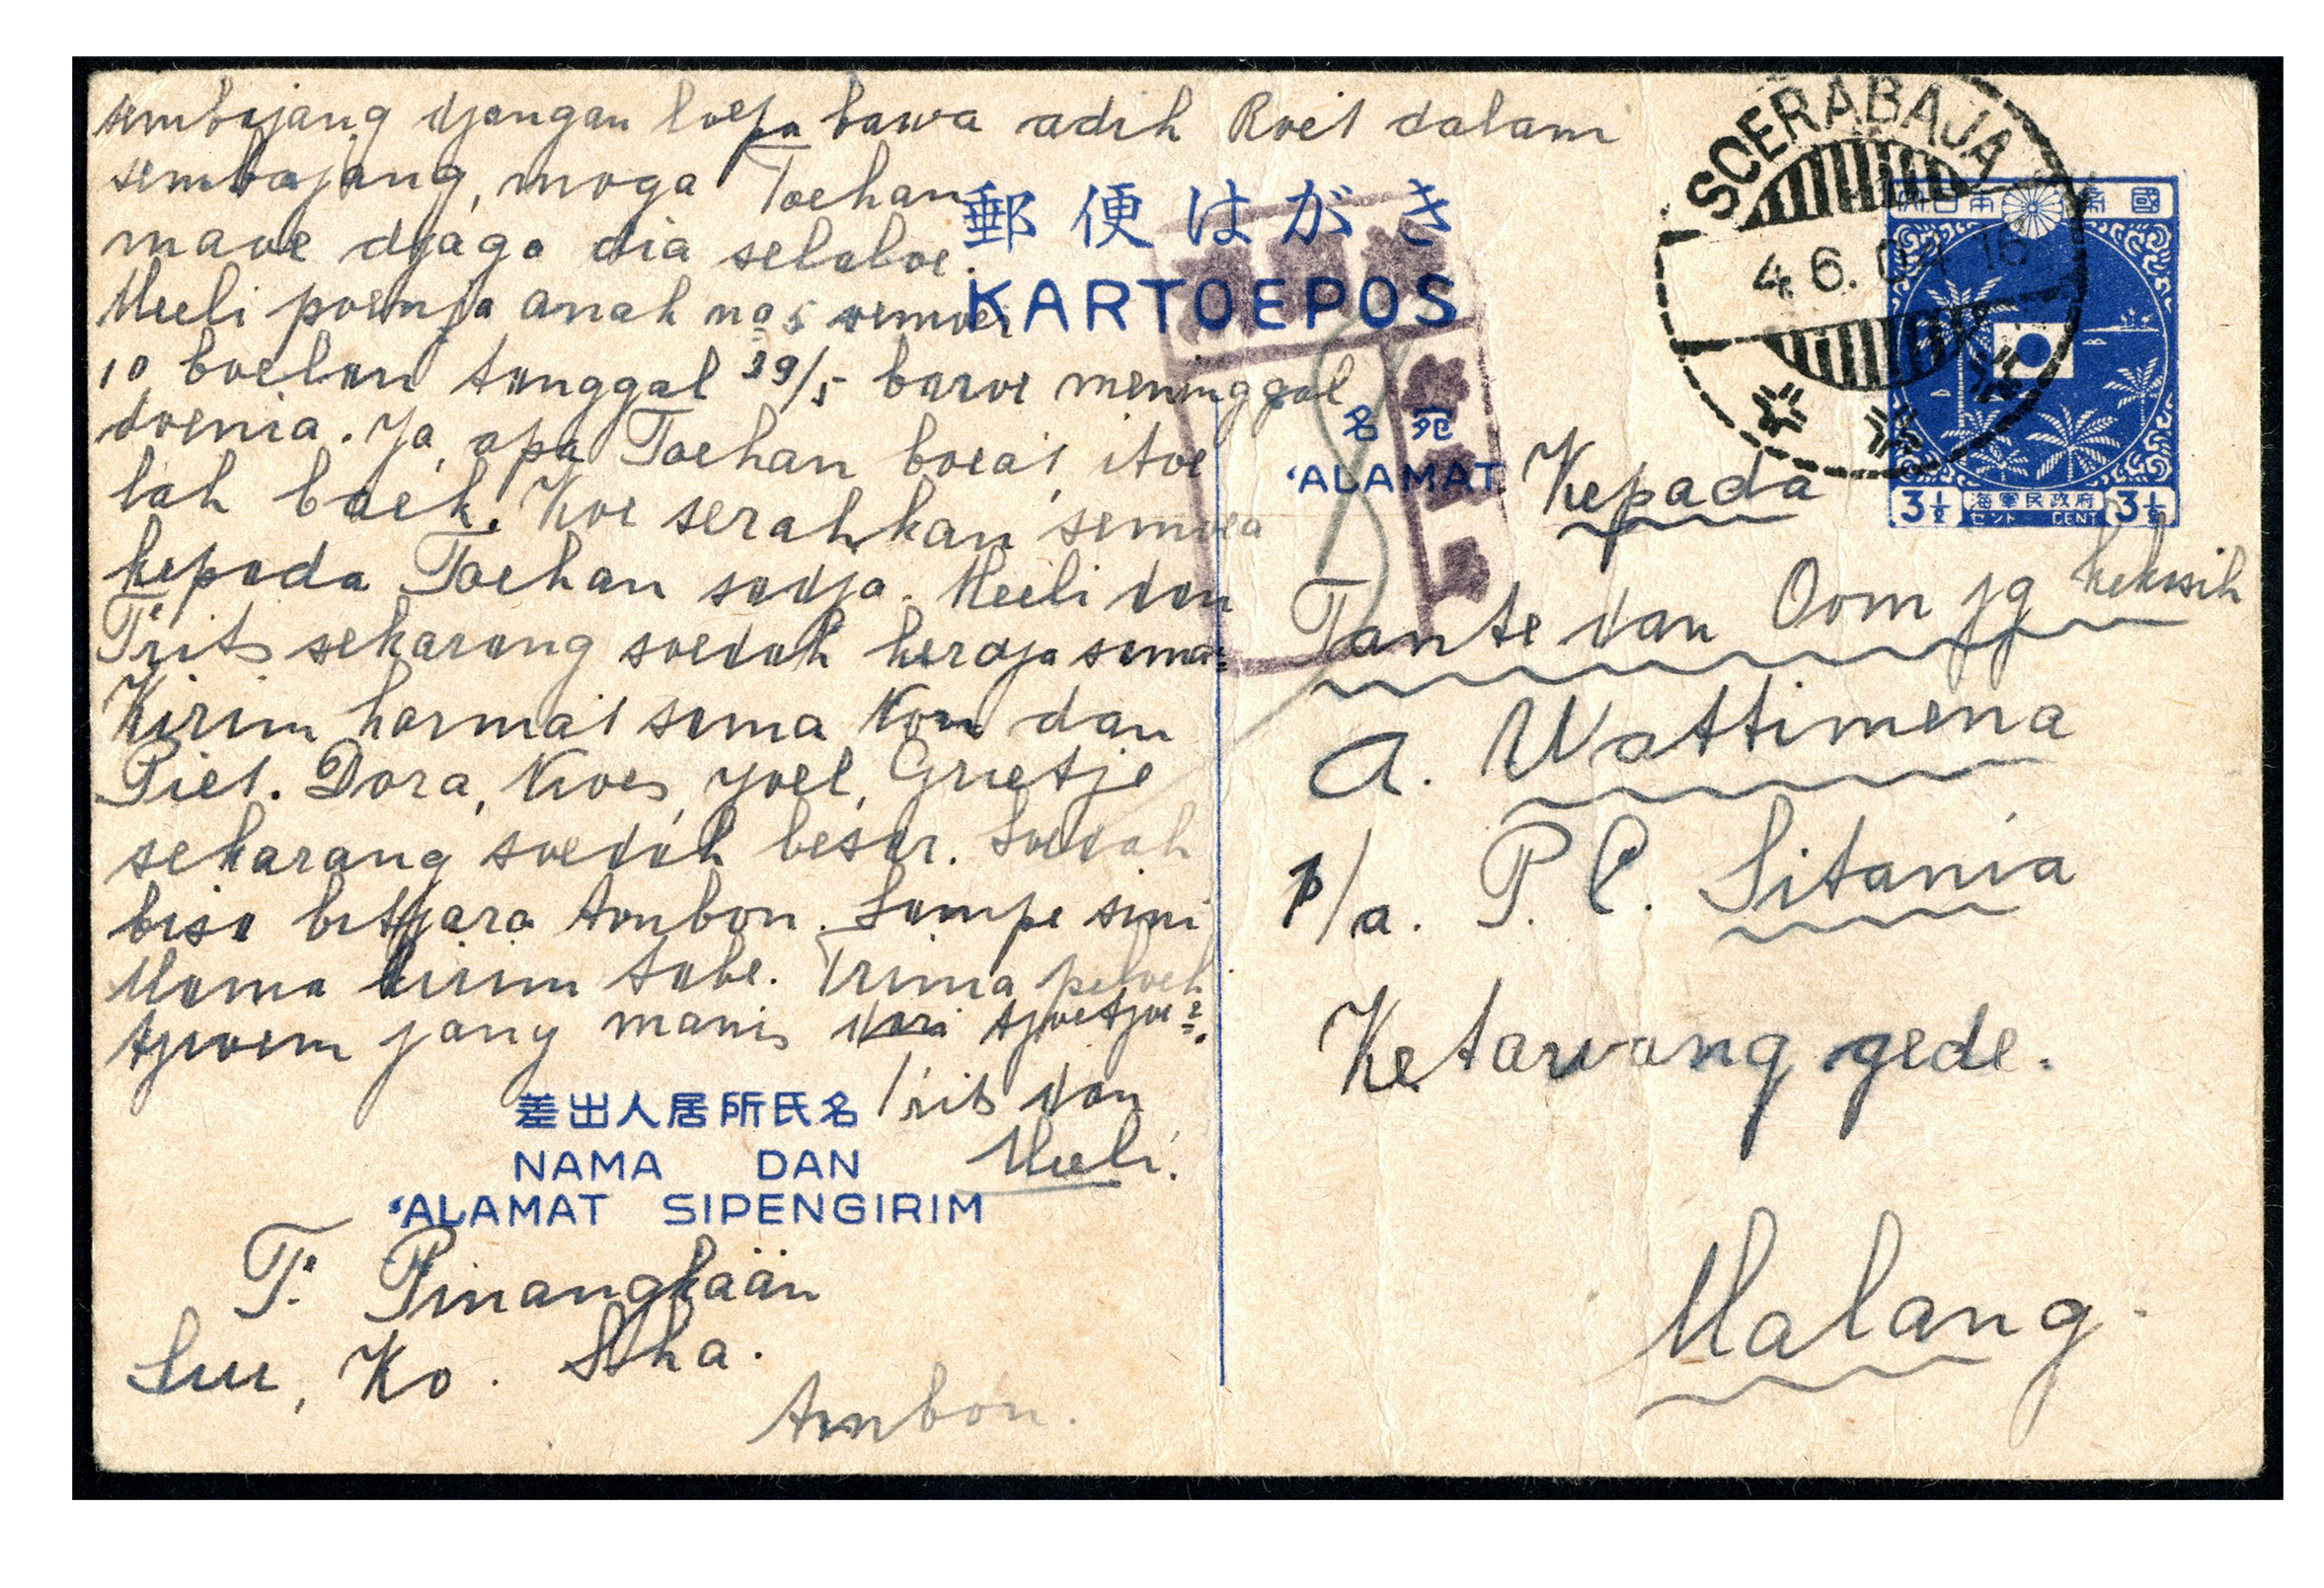 sembajang djangan loepa bawa adik Roet dalam
sembajang, moga Toehan
maoe djaga dia selaloe.
Meeli poenja anak no 5 oemoer
10 boelan tanggal 29/5 baroe meninggal
doenia. Ja, apa Toehan boeat itoe
lah baek. Koe serahkan semoea
kepada Toehan sadja. Meeli dan
Frits sekarang soedah kerdja sama2
Kirim hormat sama Nom dan
Piet. Dora, Noes, Joel, Grietje
sekarang soedah besar. Soedah
bisa bitjara Ambon. Sampe sini
Mama kirim tabe. Trima peloek
tjioem jang manis dari tjoetjoe2.
Frits dan
Meeli.
差出人居所氏名
NAMA DAN
'ALAMAT SIPENGIRIM
F. Pinangkaän
Ko.
Ambon.
郵便はがき
KARTOEPOS
SOERABAJA
4.6.04
大日本帝國
3½ 海軍民政府 3½
セント CENT
名宛
'ALAMAT
Kepada
Tante dan Oom jg kekasih
A. Wattimena
p/a. P. C. Sitania
Ketawang gede.
Malang.